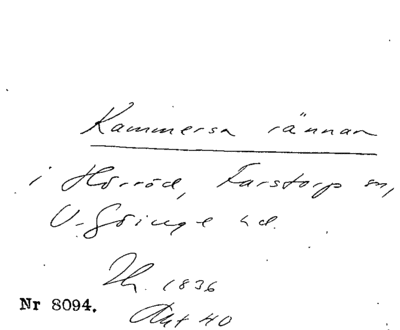 Kammersa rännan
i Hörröd, Farstorp sn,
V. Göinge hd.
Th. 1836
Nr 8094.
Akt 40